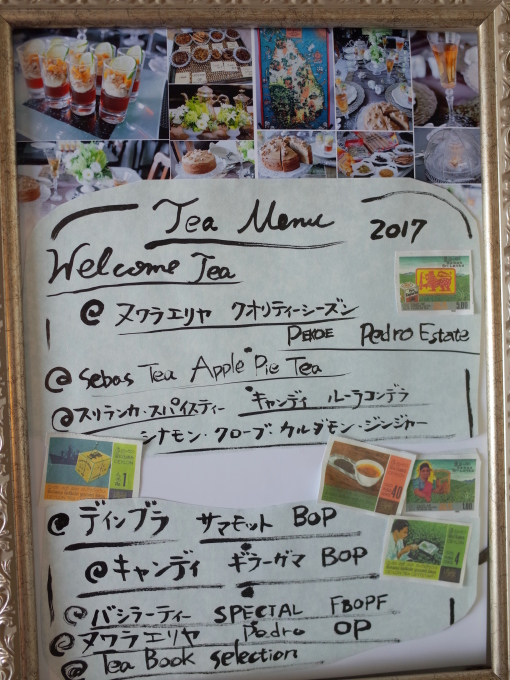 Tea Menu 2017
Welcome Tea
@ ヌワラエリヤ クオリティーシーズン
PEKOE Pedro Estate
@ Sebas Tea Apple Pie Tea
@ スリランカ・スパイスティー キャンディ ルーラコンデラ
シナモン・クローブ・カルダモン・ジンジャー
@ ディンブラ サマモット BOP
@ キャンディ ギラーゲマ BOP
@ バシラーティー SPECIAL FBOPF
@ ヌワラエリヤ Pedro OP
@ Tea Book selection